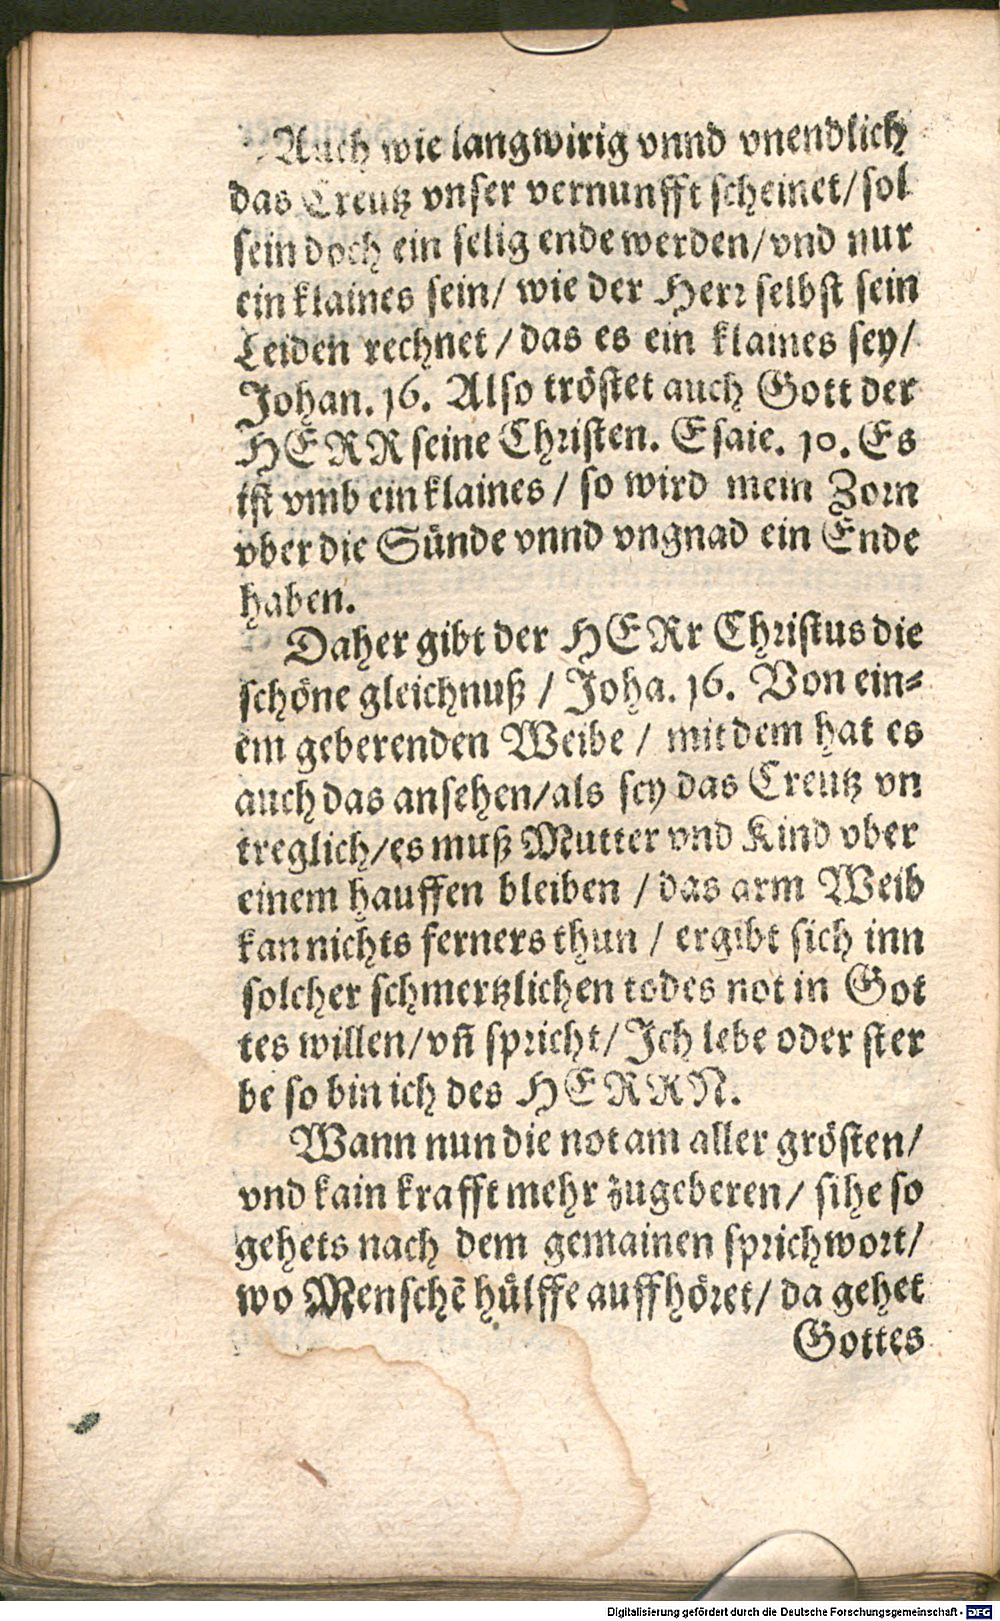 Auch wie langwirig vnnd vnendlich
das Creutz vnser vernunfft scheinet/ sol
sein doch ein selig ende werden/ vnd nur
ein klaines sein/ wie der Herr selbst sein
Leiden rechnet / das es ein klaines sey/
Johan. 16. Also tröstet auch Gott der
HERR seine Christen. Esaie. 10. Es
ist vmb ein klaines / so wird mein Zorn
vber die Sünde vnnd vngnad ein Ende
haben.
Daher gibt der HERr Christus die
schöne gleichnuß / Joha. 16. Von ein⸗
em geberenden Weibe / mit dem hat es
auch das ansehen/ als sey das Creutz vn
treglich/ es muß Mutter vnd Kind vber
einem hauffen bleiben / das arm Weib
kan nichts ferners thun / ergibt sich inn
solcher schmertzlichen todes not in Got
tes willen/ vn̄ spricht/ Ich lebe oder ster
be so bin ich des HERRN.
Wann nun die not am aller grösten/
vnd kain krafft mehr zugeberen/ sihe so
gehets nach dem gemainen sprichwort/
wo Menschē hülffe auffhöret/ da gehet
Gottes
Digitalisierung gefördert durch die Deutsche Forschungsgemeinschaft - DFG